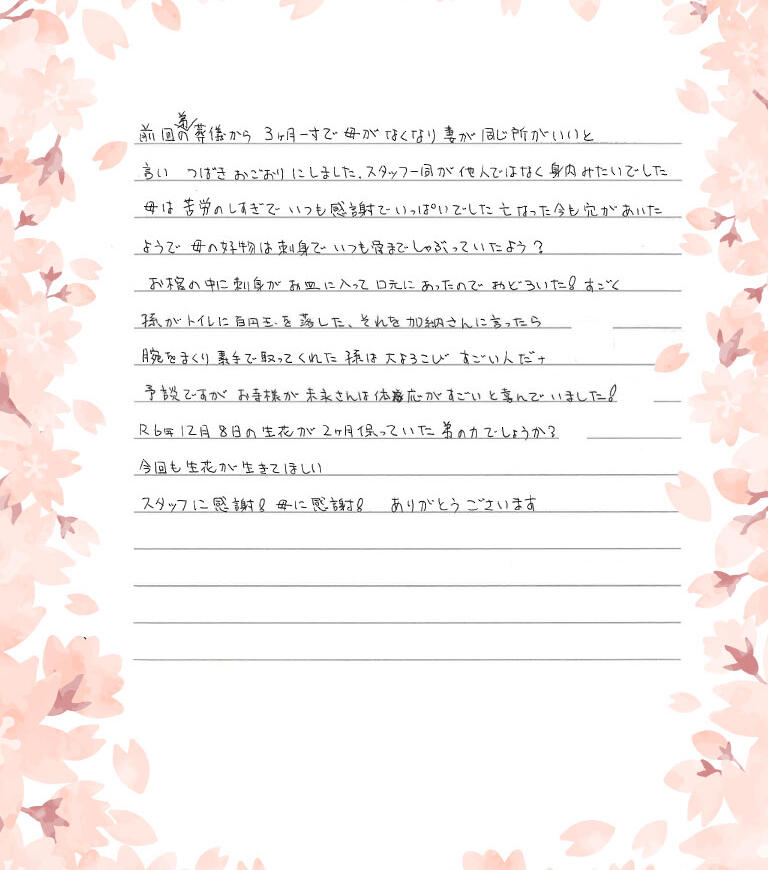 前回弟の葬儀から 3ヶ月一寸で母がなくなり妻が同じ所がいいと
言い つばきおごおりにしました。スタッフ一同が他人ではなく身内みたいでした
母は苦労のしすぎでいつも感謝でいっぱいでした 亡なった今も穴があいた
ようで 母の好物は刺身でいつも骨までしゃぶっていたよう?
お棺の中に刺身がお皿に入って口元にあったのでおどろいた! すごく
孫がトイレに百円玉を落した、それを加納さんに言ったら
腕をまくり素手で取ってくれた 孫は大よろこび すごい人だナ
予談ですが お寺様が 末永さんは体応がすごいと喜んでいました!
R6年12月8日の生花が2ヶ月保っていた 弟の力でしょうか?
今回も生花が生きてほしい
スタッフに感謝! 母に感謝! ありがとうございます